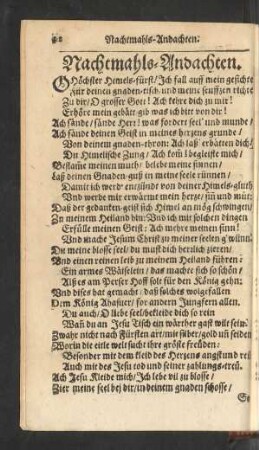 Nachtmahls-Andachten.
Nachtmahls-Andachten.
O Höchster Himels-fürst/ Ich fall auff mein gesichte
Für deinen gnaden-tisch/ und meine seufftzen richte
Zu dir/ O grosser Gott! Ach kehre dich zu mir!
Erhöre mein gebät: gib was ich bitt von dir!
Ach sände/ sände Herr! was fordert seel und munde/
Ach sände deinen Geist in meines hertzens grunde/
Von deinem gnaden-thron: Ach laß erbäten dich/
Du Himetischer Zung/ Ach kom̃ begleiste mich/
Beflam̃e meinen muth/ belebe meine sinnen/
Laß deinen Gnaden-guß in meine seele rinnen/
Damit ich werd entzündt von deiner Himels-gluth
Und werde mir erwärmt mein hertz/ sin und müth
Daß der gedanken-geist sich Himel an mög schwingen/
Zu meinem Heiland hin: Und ich mit solchen dingen
Erfülle meinen Geist: Ach mehre meinen sinn!
Und mache Jesum Christ zu meiner seelen gwinn!
Du meine blosse seel/ du must dich herrlich zieren/
Und einen reinen leib zu meinem Heiland führen:
Ein armes Wäiselein/ das machet sich so schön/
Als es am Perser Hoff solt für den König gehn:
Und dises dar gemacht/ daß solches wolgefallen
Dem König Ahasuer/ for andern Jungfern allen.
Du auch/ O liebe seel/ bekleide dich so rein
Wañ du an Jesu Tisch ein wärther gast wilt sein:
Zwahr nicht nach Fürsten art/ mit silber/ gold uñ seiden
Worin die eitle welt sucht ihre gröste freuden:
Besonder mit dem kleid des Hertzens angst und reü
Auch mit des Jesu tod und seiner zahlungs-treü.
Ach Jesu Kleide mich/ Ich lebe vil zu blosse/
Zier meine seel bey dir/ in deinem gnaden schosse/